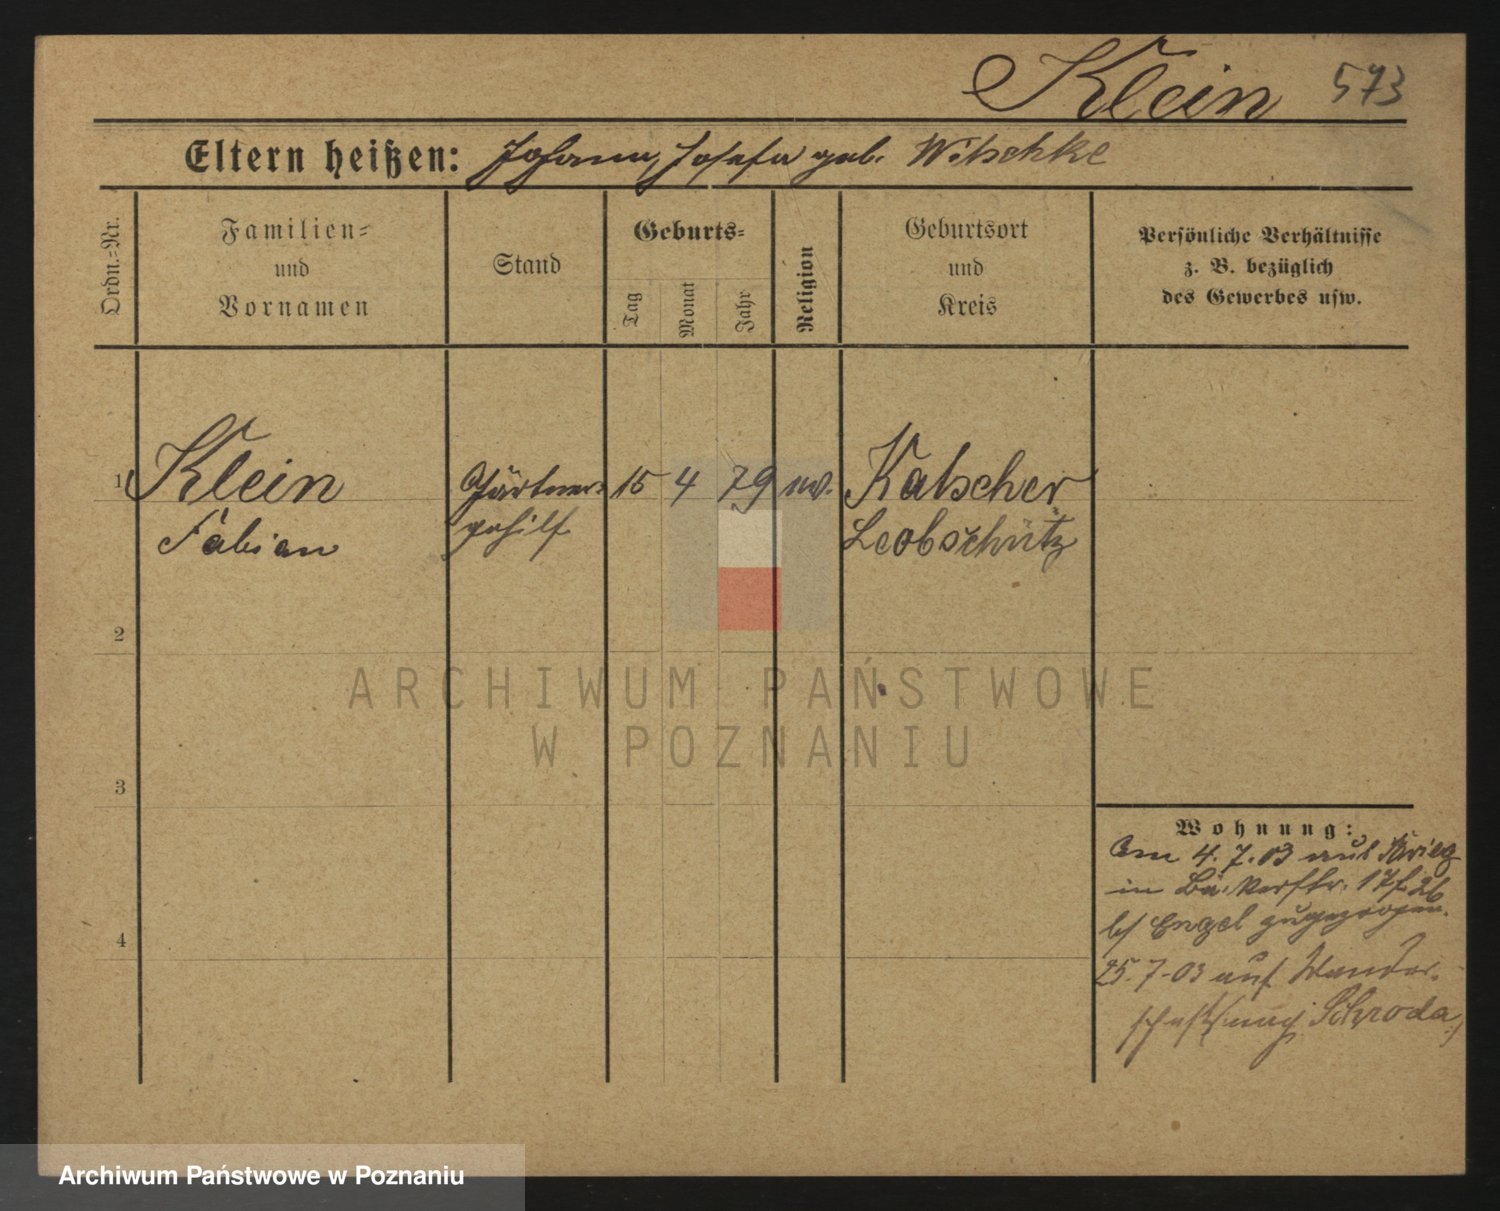 Klein 573
Eltern heißen: Johann, Josefa geb. Witschke
Ordn.-Nr.
Familien-
und
Vornamen
Stand
Geburts-
Tag
Monat
Jahr
Religion
Geburtsort
und
Kreis
Persönliche Verhältnisse
z. B. bezüglich
des Gewerbes usw.
1 Klein Gärtner- 15 4 79 Katscher
Fabian gehilf Leobschütz
2
3
4
Wohnung:
Am 4. 7. 03 aus
in
b/ Engel zugezogen.
25. 7. 03 auf Wander-
schaft (nach Schroda)
ARCHIWUM PAŃSTWOWE
W POZNANIU
Archiwum Państwowe w Poznaniu